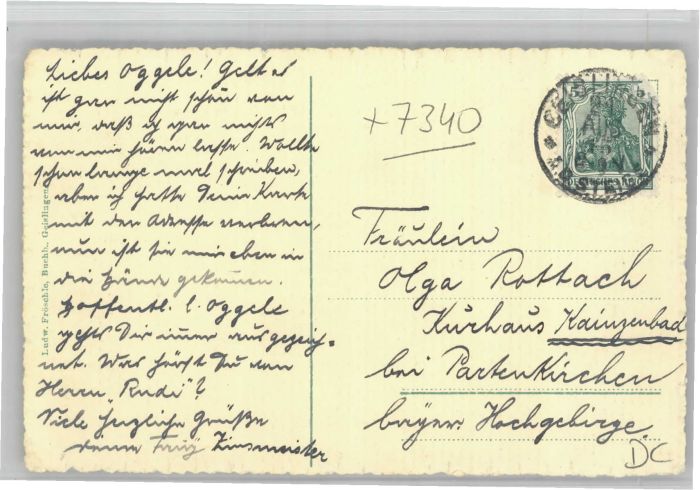 Liebes Oggele! Gelt es
ist gar nicht schön von
mir, daß ich gar nichts
von mir hören lasse. Wollte
schon lange mal schreiben,
aber ich hatte Deine Karte
mit der Adresse verloren,
nun ist sie mir eben in
die Hände gekommen.
Hoffentl. l. Oggele
geht's Dir immer ausgezeich-
net. Was hörst Du von
Herrn "Rudi"?
Viele herzliche Grüße
Deine Zinsmeister
Ludw. Fröschle, Buchh. Geislingen
+7340
Fräulein
Olga Rottach
Kurhaus Kainzenbad
bei Partenkirchen
bayer. Hochgebirge.
DC